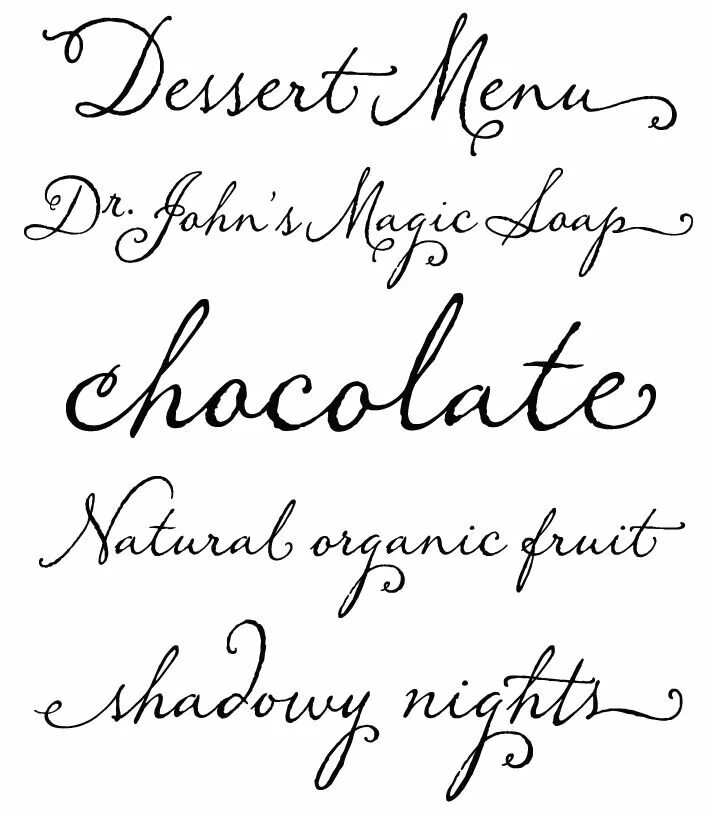 Dessert Menu
Dr. John's Magic Soap
chocolate
Natural organic fruit
shadowy nights